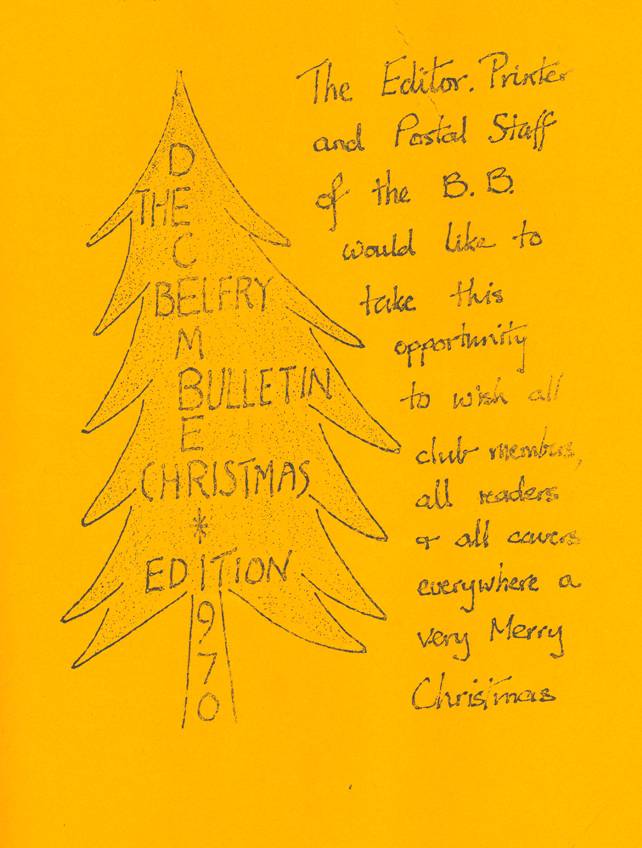 D
THE
C
BELFRY
M
BULLETIN
E
CHRISTMAS
*
EDITION
9
7
0
The Editor. Printer
and Postal Staff
of the B.B.
would like to
take this
opportunity
to wish all
club members,
all readers
& all cavers
everywhere a
very Merry
Christmas